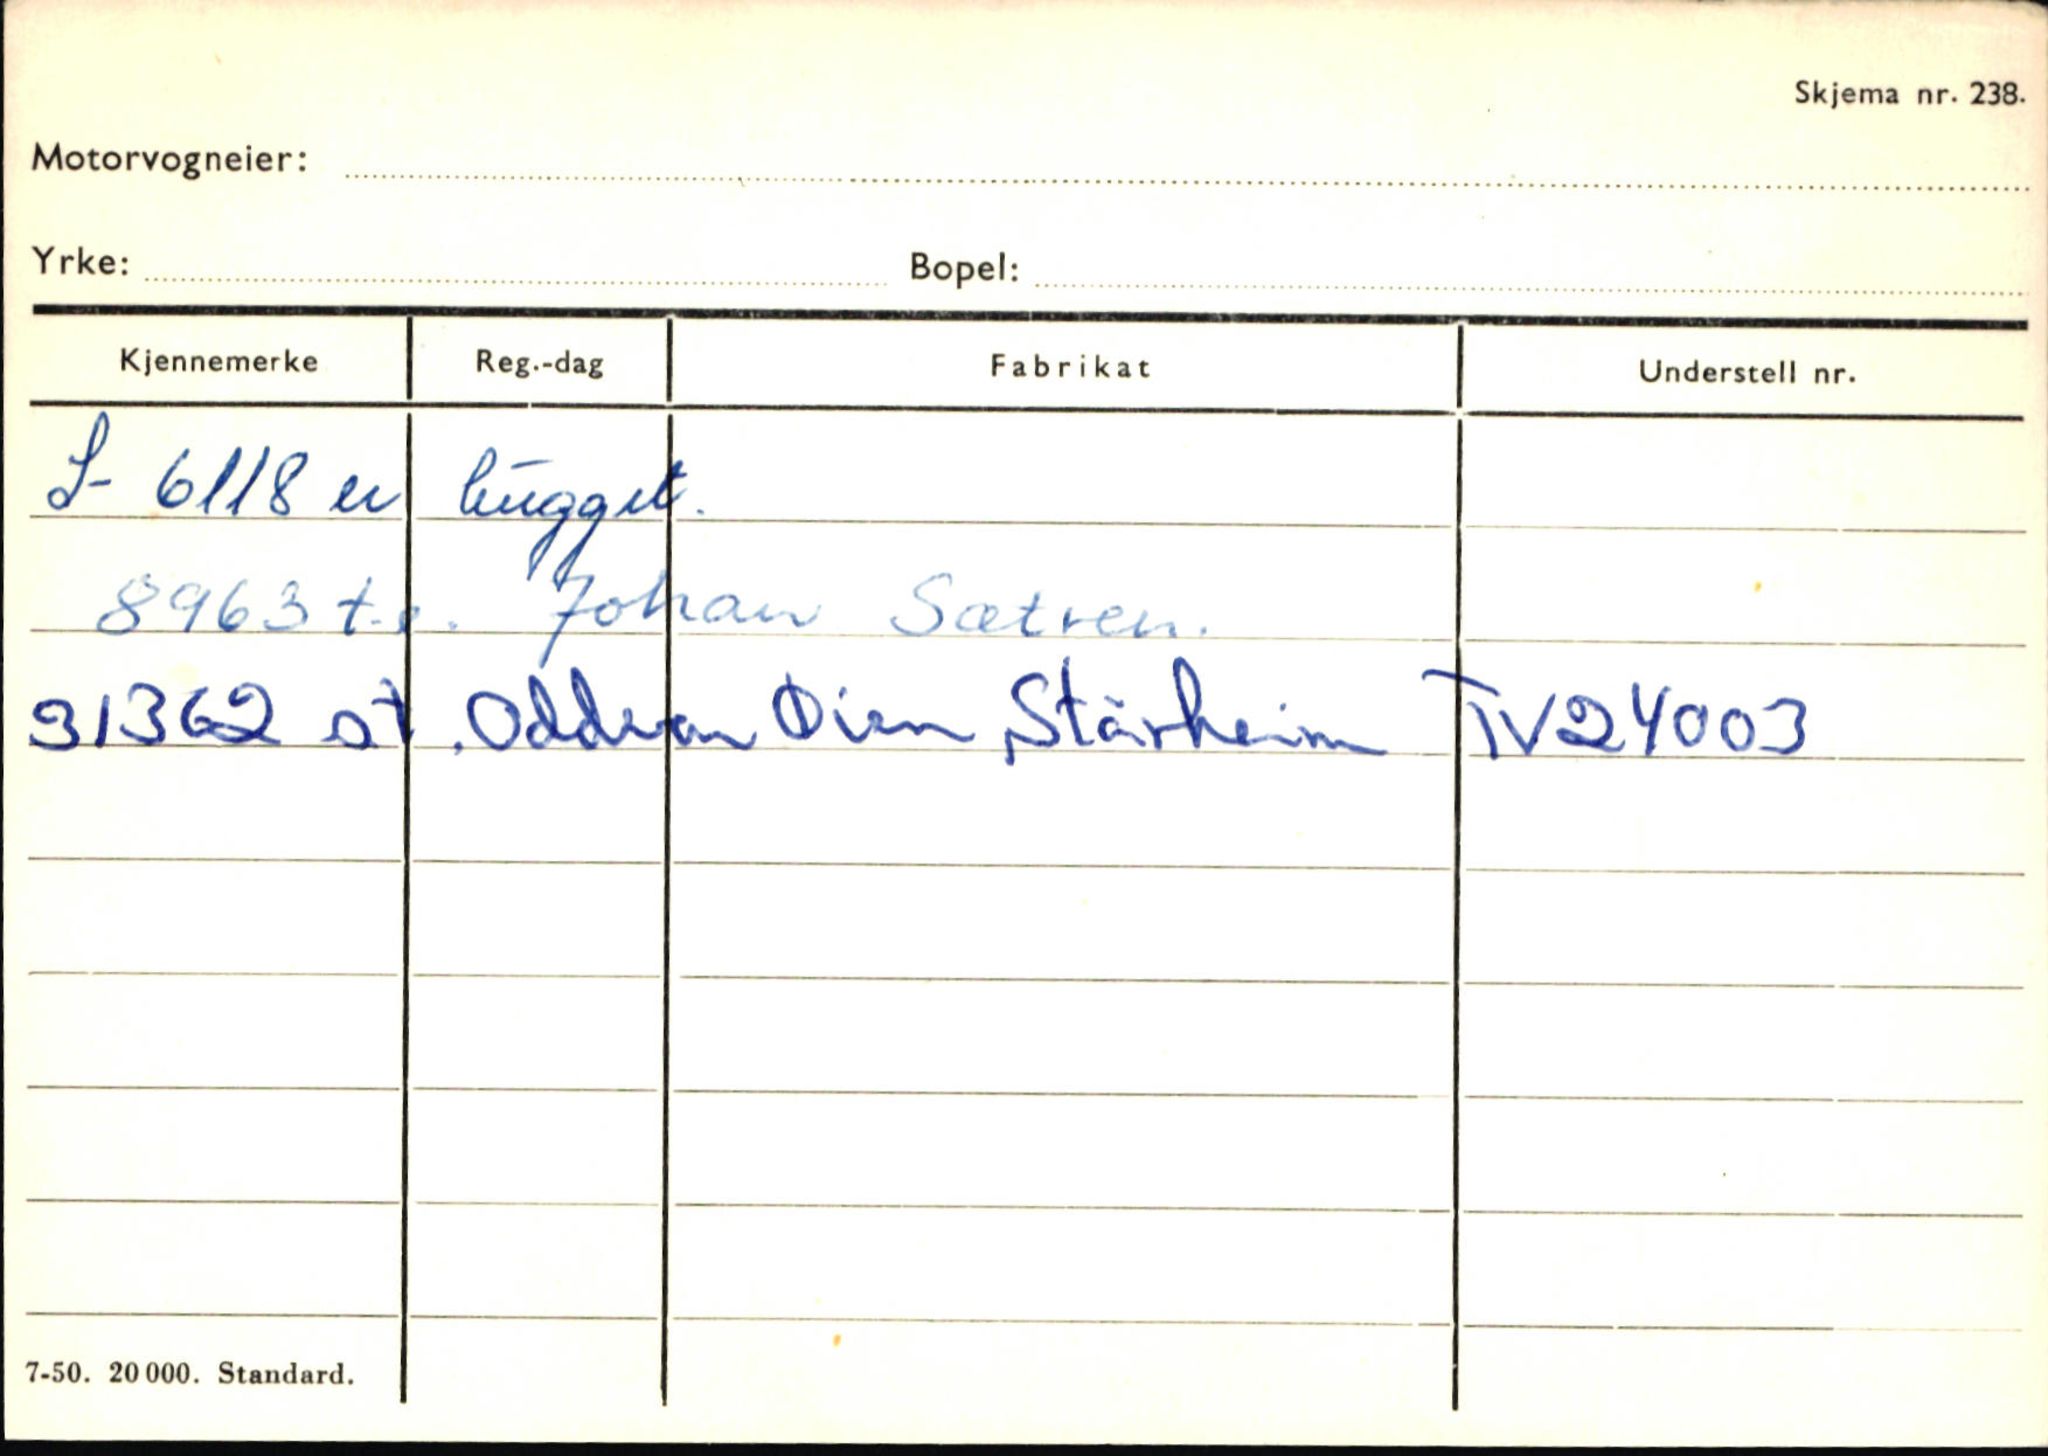 Skjema nr. 238.
Motorvogneier:
Yrke: Bopel:
Kjennemerke Reg.-dag Fabrikat Understell nr.
S- 6118 er hugget.
8963 t.e. Johan Sætren.
31362 st. Oddvar Øien, Stårheim TV24003
7-50. 20 000. Standard.